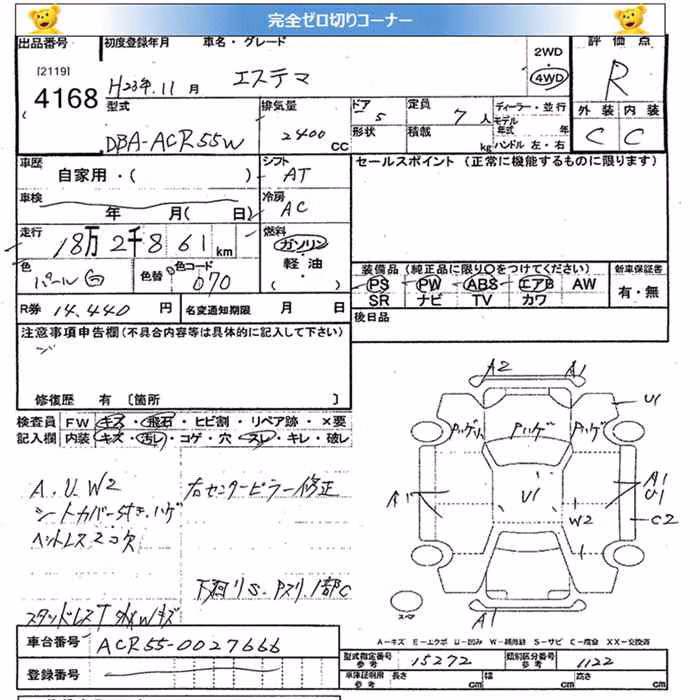 完全ゼロ切りコーナー
出品番号 初度登録年月 車名・グレード 2WD 評価点
[2119] 4168 H23年.11月 エステマ 4WD R
型式 排気量 ドア 定員 ディーラー・並行 外装 内装
DBA-ACR55W 2400 CC 5 7人 モデル年式 年 C C
形状 積載 kg ハンドル 左・右
車歴 シフト セールスポイント (正常に機能するものに限ります)
自家用・( ) AT
車検 冷房
年 月( 日) AC
走行 燃料
18万2千861km ガソリン
軽油
( )
色 色替 色コード 装備品(純正品に限り〇をつけてください) 新車保証書
パール白 070 PS PW ABS エアB AW 有・無
SR ナビ TV カワ
R券 14,440円 名変通知期限 月 日 後日品
注意事項申告欄(不具合内容等は具体的に記入して下さい)
修復歴 有 〔箇所 〕
検査員 FW キズ・飛石・ヒビ割・リペア跡・×要
記入欄 内装 キズ・汚レ・コゲ・穴・スレ・キレ・破レ
A2 A1
U1
Pハゲ Pハゲ
A.U.W2 右センターピラー修正
シートカバー付き.ハゲ
ヘットレス2コ欠
A1 U1 A1
U1
W2 C2
下廻りS.Pスリ.1部C
スタッドレスT
スマ A1
A-キズ E-エクボ U-凹み W-補修跡 S-サビ C-腐食 XX-交換済
車台番号 ACR55-0027666
型式指定番号 参考 15272 類別区分番号 参考 1122
登録番号 車庫証明用 参考 長さ cm 幅 cm 高さ cm